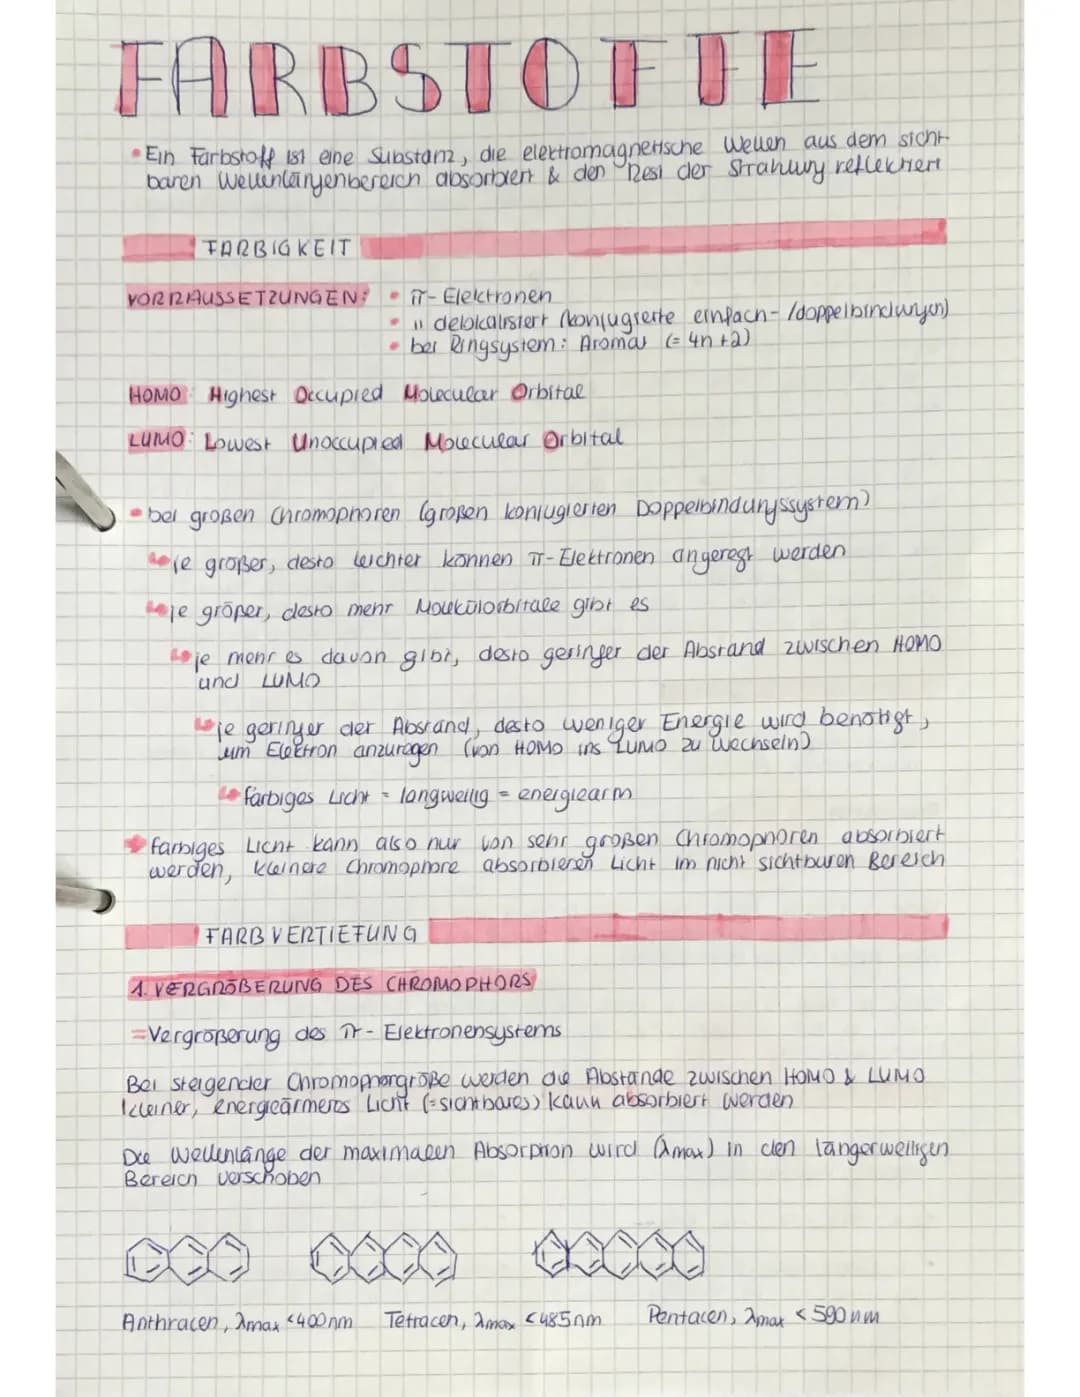 FARBSTOFFE
• Ein Farbstoff ist eine Substanz, die elektromagnetische Wellen aus dem sicht-
baren Wellenlängenbereich absorbiert & den Rest der Strahlung reflektiert
FARBIGKEIT
VORRAUSSETZUNGEN: • π-Elektronen
• " delokalisiert (konjugierte einfach-/doppelbindungen)
• bei Ringsystem: Aromat (= 4n+2)
HOMO: Highest Occupied Molecular Orbital
LUMO: Lowest Unoccupied Molecular Orbital
• bei großen Chromophoren (großen konjugierten Doppelbindungssystem)
↳ je größer, desto leichter können π-Elektronen angeregt werden
↳ je größer, desto mehr Molekülorbitale gibt es
↳ je mehr es davon gibt, desto geringer der Abstand zwischen HOMO
und LUMO
↳ je geringer der Abstand, desto weniger Energie wird benötigt,
um Elektron anzuregen (von HOMO ins LUMO zu wechseln)
↳ farbiges Licht = langwellig = energiearm
→ farbiges Licht kann also nur von sehr großen Chromophoren absorbiert
werden, kleinere Chromophore absorbieren Licht im nicht sichtbaren Bereich
FARBVERTIEFUNG
1. VERGRÖßERUNG DES CHROMOPHORS
=Vergrößerung des π-Elektronensystems
Bei steigender Chromophorgröße werden die Abstände zwischen HOMO & LUMO
kleiner, energieärmeres Licht (=sichtbares) kann absorbiert werden
Die Wellenlänge der maximalen Absorption wird (λmax) in den längerwelligen
Bereich verschoben
Anthracen, λmax <400nm Tetracen, λmax <485nm Pentacen, λmax <590nm